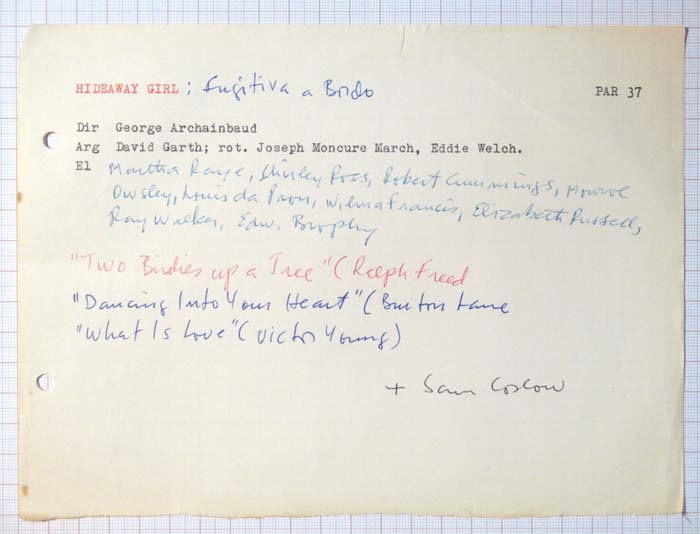 HIDEAWAY GIRL ; Fugitiva a Bordo PAR 37
Dir George Archainbaud
Arg David Garth; rot. Joseph Moncure March, Eddie Welch.
El Martha Raye, Shirley Ross, Robert Cummings, Monroe
Owsley, Louis da Pron, Wilma Francis, Elizabeth Russell,
Ray Walker, Edw. Brophy
"Two Birdies up a Tree" (Ralph Freed
"Dancing Into Your Heart" (Burton Lane
"What Is Love" (Victor Young)
+ Sam Coslow